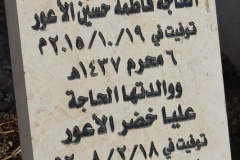 الحاجة فاطمة حسين الأعور
توفيت في ٢٠١٥/١٠/١٩م
٦ محرم ١٤٣٧هـ
ووالدتها الحاجة
عليا خضر الأعور
توفيت في
٢٠٠٨/٢/١٨م